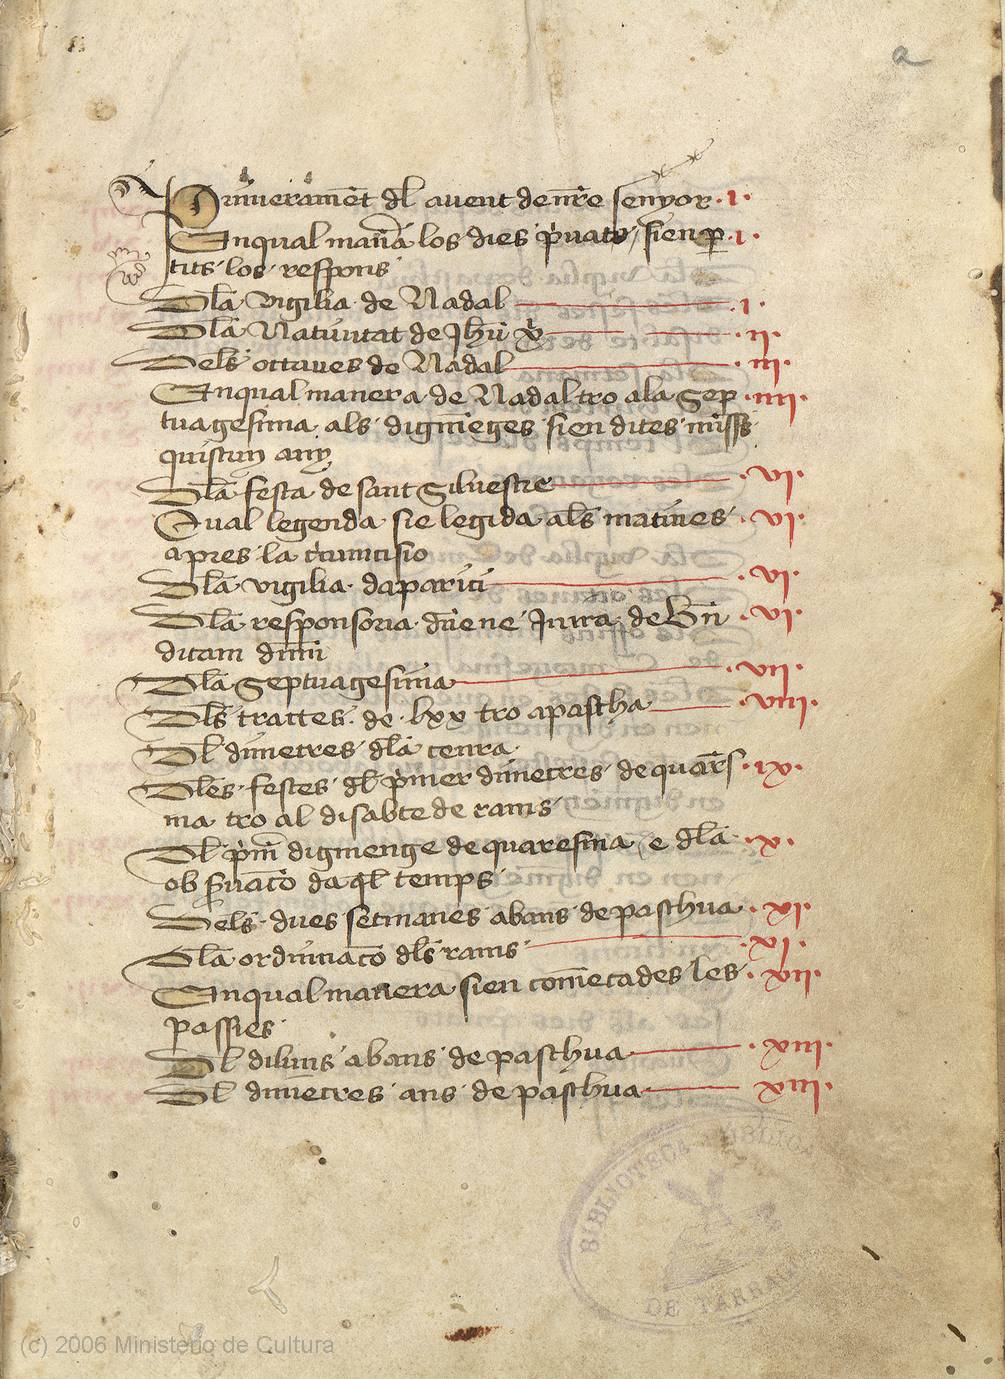 a
Primerament dl avent de nr̄e senyor · i ·
En qual man̄a los dies p̀uats / sien p · i ·
tits los respons
Dla vigilia de Nadal · i ·
Dla Natiuitat de Jhū xp̄ · ii ·
Dels octaues de Nadal · iii ·
En qual manera de Nadal tro a la Sep · iiii ·
tuagesima als digmēges sien dites miss̄
quiscun any
Dla festa de sant Siluestre · vi ·
Qual legenda sie legida als matines · vi ·
apres la circumcisio
Dla vigilia daparici · vi ·
Dla responsoria de Bn̄ · vi ·
dictam dnni
Dla Septuagesima · vii ·
Dls tractes de lxx tro a pascha · viii ·
Dl dimecres dla cenra
Dles festes dl p̀mer dimecres de quar̄s · ix ·
ma tro al disabte de rams
Dl p̀m̄ digmenge de quaresma / e dla · ix ·
obs̄uacō daql temps
Dels dues setmanes abans de paschua · xi ·
Dla ordinacō dls rams · xi ·
En qual manera sien comēcades les · xii ·
passies
Dl diluns abans de paschua · xiii ·
Dl dimecres ans de paschua xiii ·
BIBLIOTECA PUBLICA
DE TARRAGONA
(c) 2006 Ministerio de Cultura